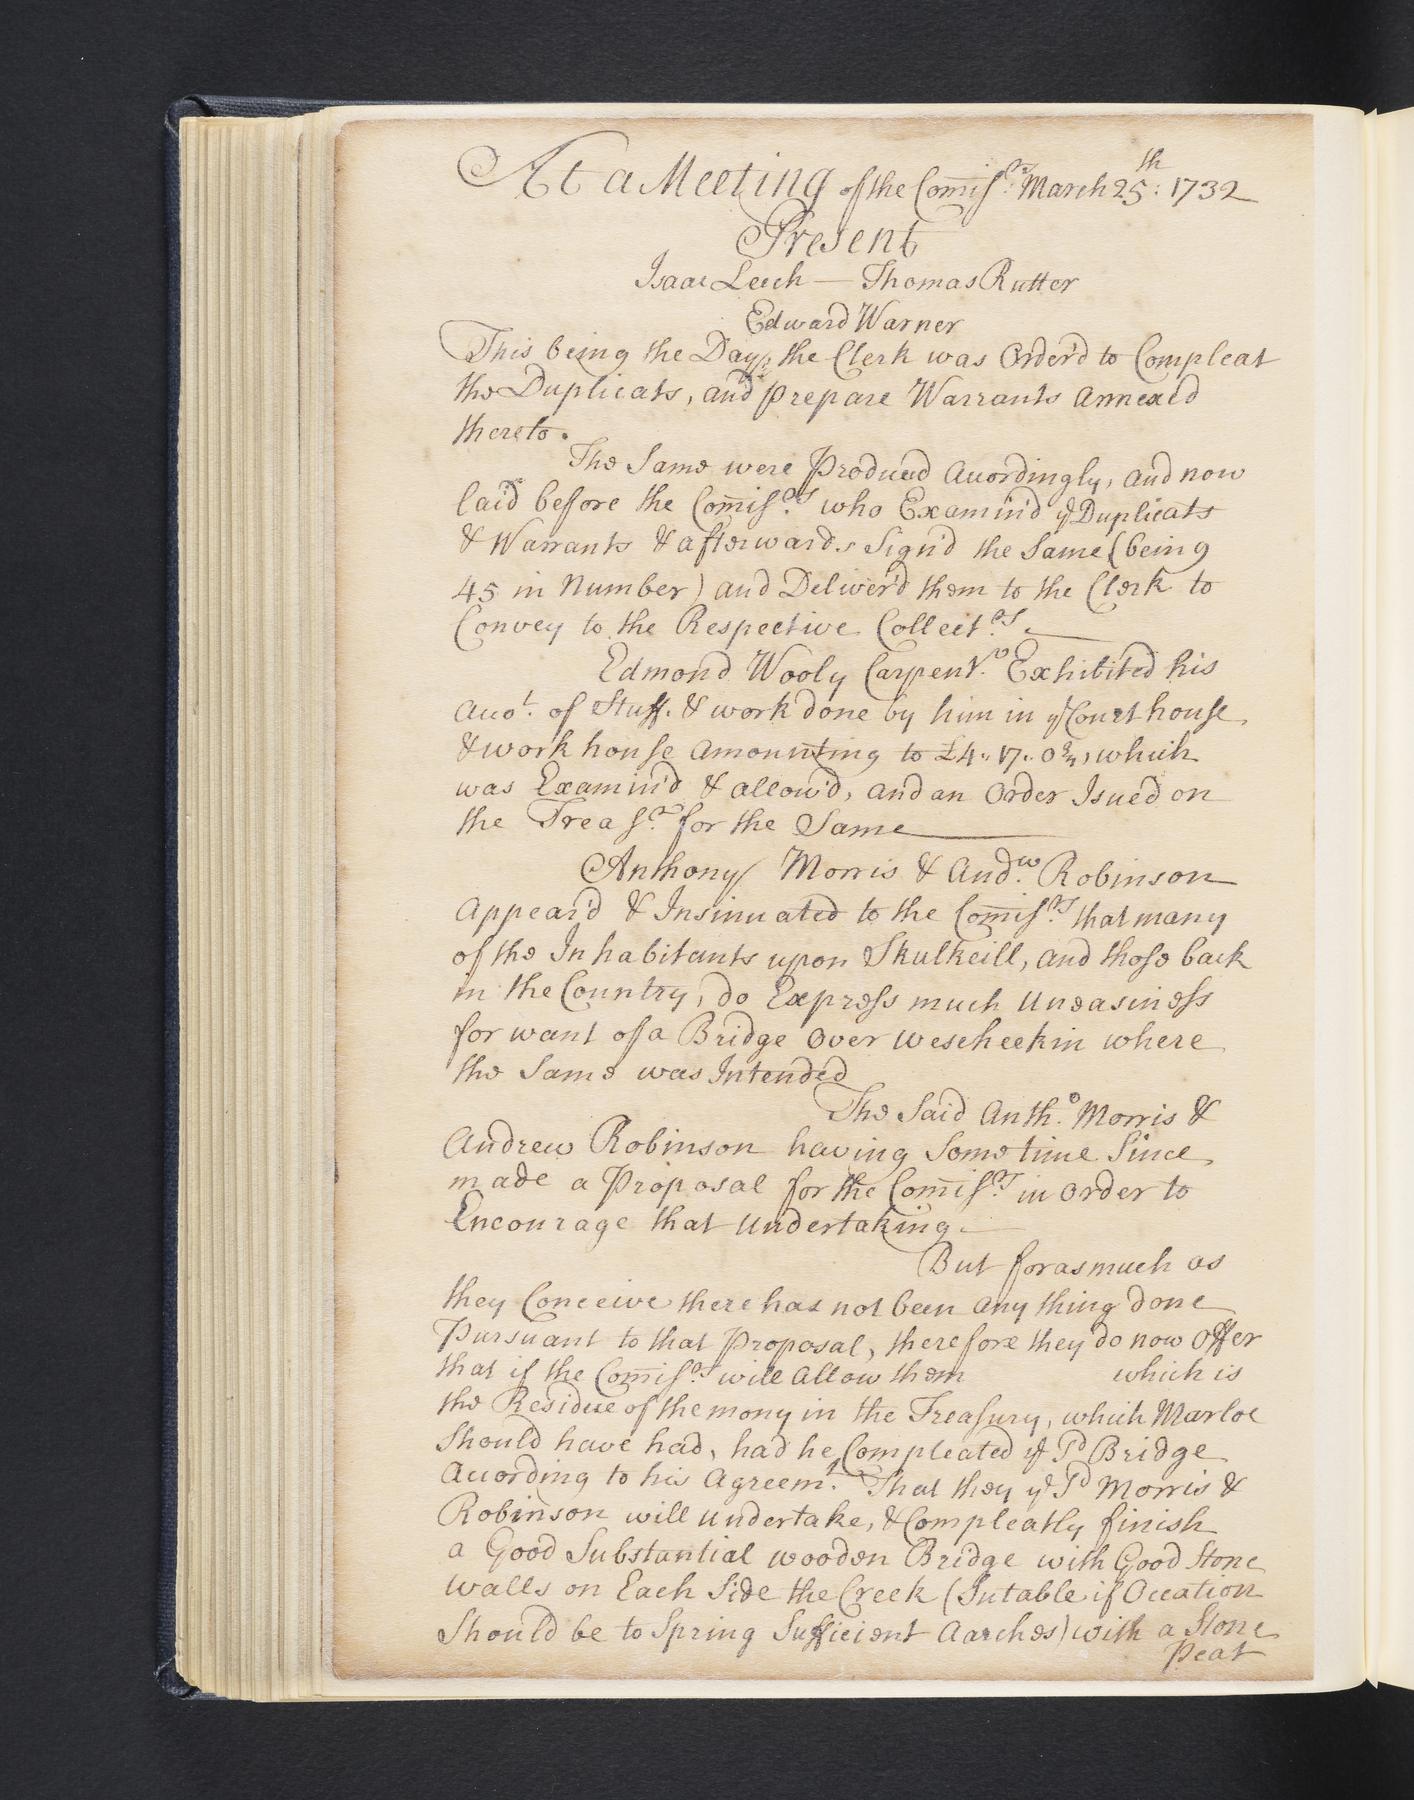 At a Meeting of the Com̄isrs: March 25th: 1732
Present
Isaac Leech — Thomas Rutter
Edward Warner
This being the Day the Clerk was Order'd to Compleat
the Duplicats, and prepare Warrants Annexed
thereto.
The Same were Produced Accordingly, and now
laid before the Com̄isrs. who Examin'd ye Duplicats
& Warrants & afterwards Sign'd the Same (being
45 in Number) and Deliver'd them to the Clerk to
Convey to the Respective Collectrs.
Edmond Wooly Carpentr. Exhibited his
Accot. of Stuff & work done by him in ye Court house,
& work house amounting to £4.. 17.. 0¾, which
was Examin'd & allow'd, and an Order Isued on
the Treasr. for the Same
Anthony Morris & Andw. Robinson
Appear'd & Insinuated to the Com̄isrs. that many
of the Inhabitants upon Skulkeill, and those back
in the Country, do Express much Uneasiness
for want of a Bridge Over Wescheekin where
the Same was Intended
The Said Antho. Morris &
Andrew Robinson having Some time Since
made a Proposal for the Com̄isrs. in Order to
Encourage that Undertaking.
But forasmuch as
they Conceive there has not been any thing done
Pursuant to that Proposal, therefore they do now Offer
that if the Com̄isrs. will Allow them which is
the Residue of the mony in the Treasury, which Marloe
Should have had, had he Compleated ye Sd Bridge
According to his Agreemt. That they ye Sd Morris &
Robinson will Undertake, & Compleatly finish
a Good Substantial wooden Bridge with Good Stone
Walls on Each Side the Creek (Sutable if Occation
Should be to Spring Sufficient Aarches) with a Stone
Peat